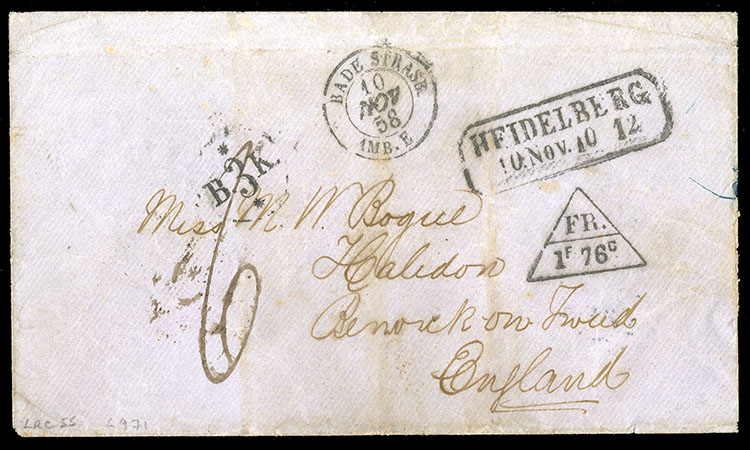 BADE STRASB.
10
NOV
58
AMB. E
HEIDELBERG
10. Nov. 10 12
B. 3 K.
FR.
1F 76C
6
Miss M. W. Bogue
Halidon
Berwick on Tweed
England
LRC 55 L971